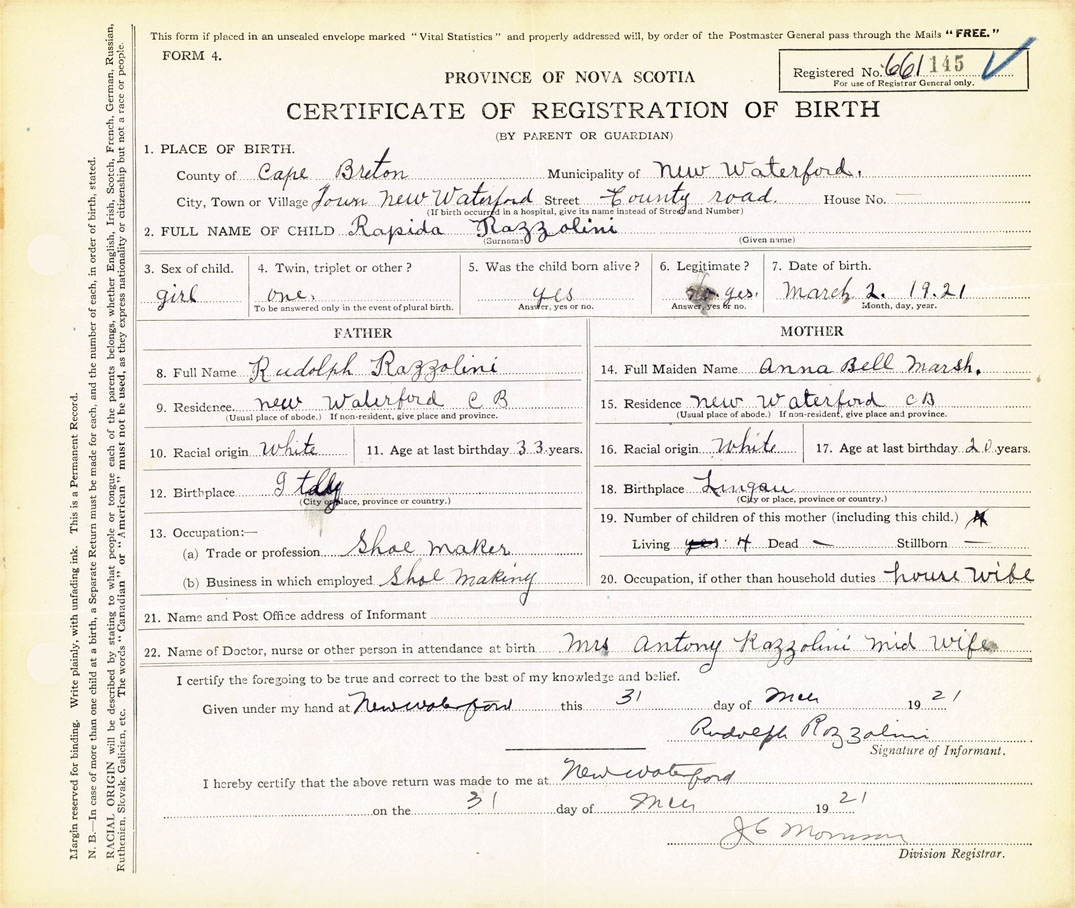 This form if placed in an unsealed envelope marked "Vital Statistics" and properly addressed will, by order of the Postmaster General pass through the Mails "FREE."
FORM 4.
Registered No. 661 145
For use of Registrar General only.
PROVINCE OF NOVA SCOTIA
CERTIFICATE OF REGISTRATION OF BIRTH
(BY PARENT OR GUARDIAN)
1. PLACE OF BIRTH.
County of Cape Breton Municipality of New Waterford.
City, Town or Village Town New Waterford Street County road. House No. —
(If birth occurred in a hospital, give its name instead of Street and Number)
2. FULL NAME OF CHILD Rapida Razzolini
(Surname) (Given name)
3. Sex of child. 4. Twin, triplet or other? 5. Was the child born alive? 6. Legitimate? 7. Date of birth.
girl one. yes yes. March 2. 19.21
To be answered only in the event of plural birth. Answer, yes or no. Answer, yes or no. Month, day, year.
FATHER
8. Full Name Rudolph Razzolini
9. Residence. new Waterford C B
(Usual place of abode.) If non-resident, give place and province.
10. Racial origin White 11. Age at last birthday 33 years.
12. Birthplace Italy
(City or place, province or country.)
13. Occupation:—
(a) Trade or profession Shoe maker
(b) Business in which employed Shoe making
MOTHER
14. Full Maiden Name Anna Bell Marsh.
15. Residence new Waterford C B
(Usual place of abode.) If non-resident, give place and province.
16. Racial origin White 17. Age at last birthday 20 years.
18. Birthplace Lingan
(City or place, province or country.)
19. Number of children of this mother (including this child.) 4
Living yes: 4 Dead — Stillborn —
20. Occupation, if other than household duties house wife
21. Name and Post Office address of Informant
22. Name of Doctor, nurse or other person in attendance at birth Mrs Antony Razzolini mid wife
I certify the foregoing to be true and correct to the best of my knowledge and belief.
Given under my hand at New waterford this 31 day of Mch 19 21
Rudolph Rozzolini
Signature of Informant.
I hereby certify that the above return was made to me at New waterford
on the 31 day of Mch 19 21
J C Morrison
Division Registrar.
Margin reserved for binding. Write plainly, with unfading ink. This is a Permanent Record.
N. B.—In case of more than one child at a birth, a Separate Return must be made for each, and the number of each, in order of birth, stated.
RACIAL ORIGIN will be described by stating to what people or tongue each of the parents belongs, whether English, Irish, Scotch, French, German, Russian,
Ruthenian, Slovak, Galician, etc. The words "Canadian" or "American" must not be used, as they express nationality or citizenship but not a race or people.